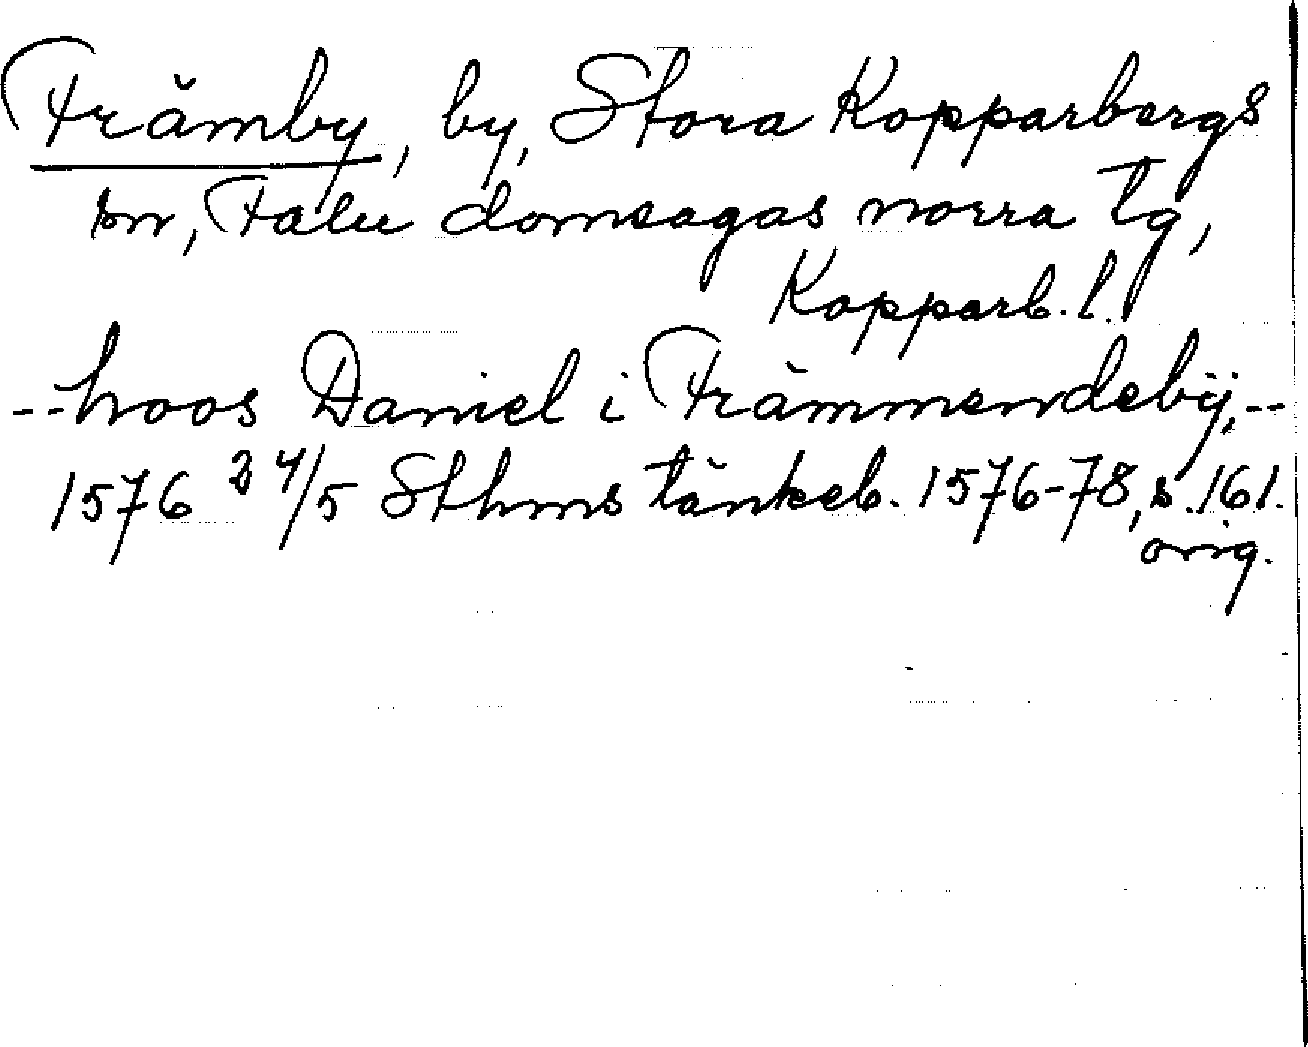 Främby, by, Stora Kopparbergs
sn, Falu domsagas norra tg,
Kopparb. l.
--hoos Daniel i Främmendebÿ,--
1576 24/5 Sthms tänkeb. 1576-78, s. 161.
orig.